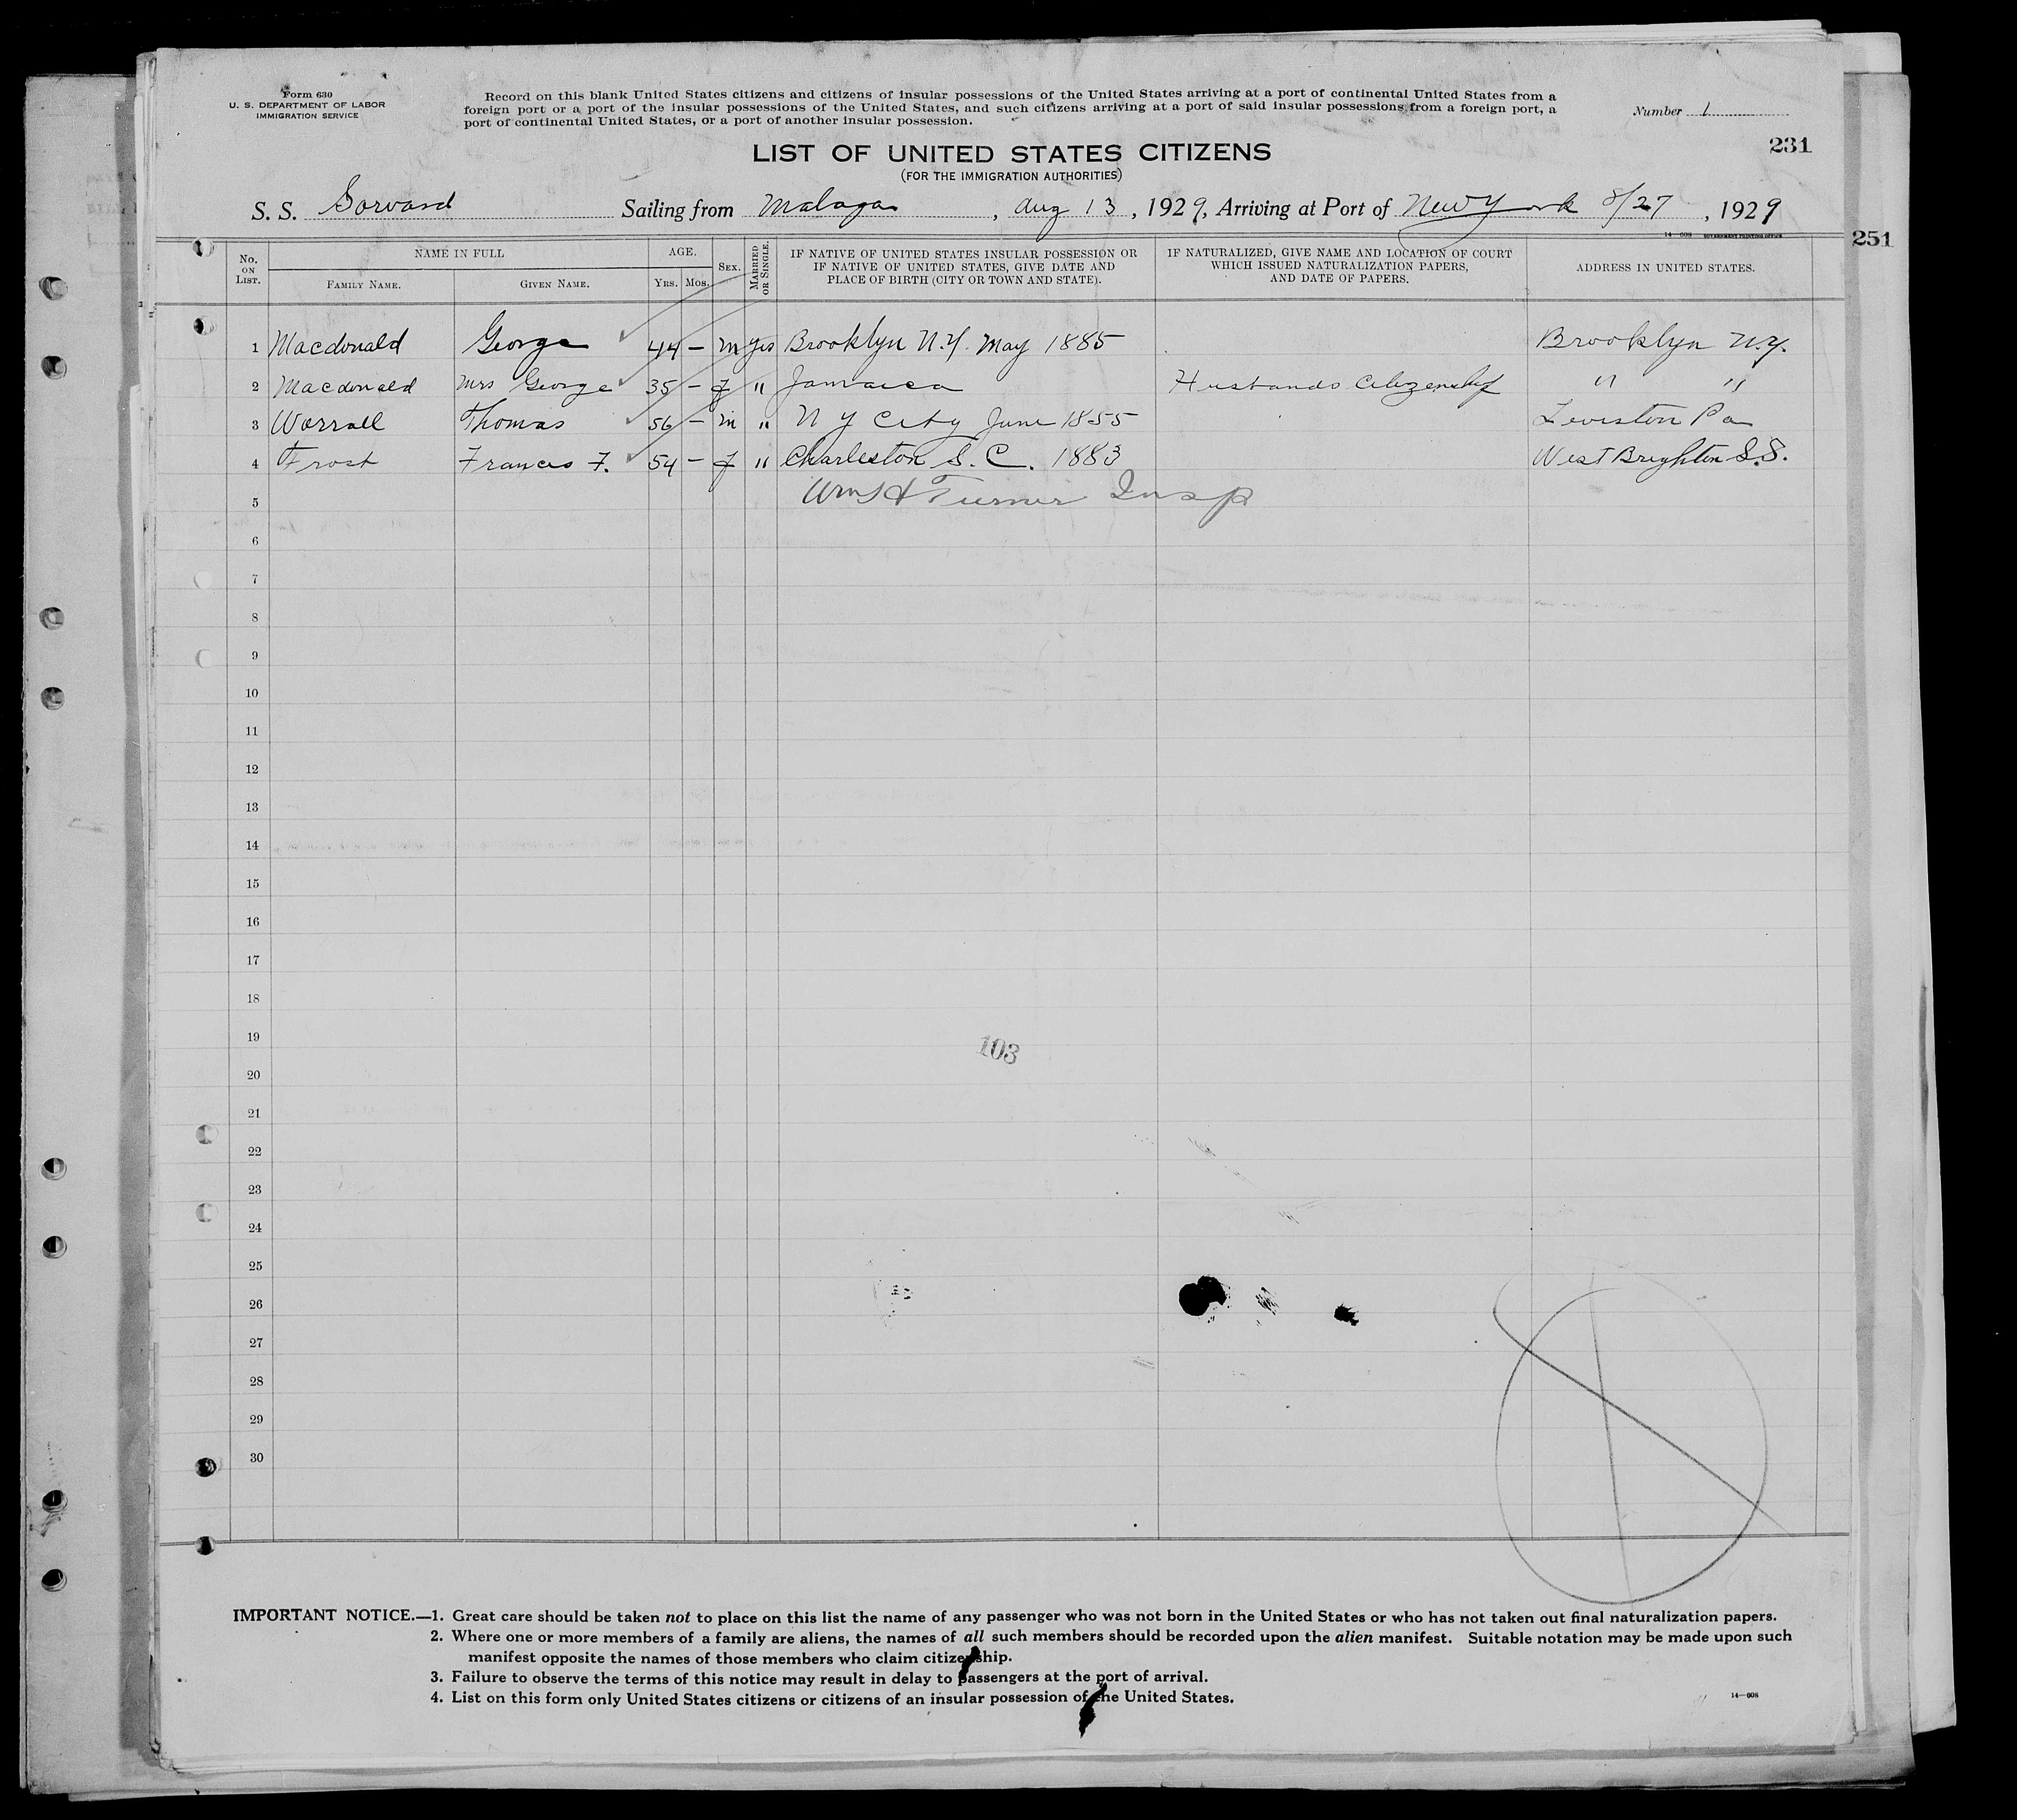 Form 630
U. S. DEPARTMENT OF LABOR
IMMIGRATION SERVICE
Record on this blank United States citizens and citizens of insular possessions of the United States arriving at a port of continental United States from a
foreign port or a port of the insular possessions of the United States, and such citizens arriving at a port of said insular possessions from a foreign port, a
port of continental United States, or a port of another insular possession.
Number 1
231
LIST OF UNITED STATES CITIZENS
(FOR THE IMMIGRATION AUTHORITIES)
S. S. Sorvard Sailing from Malaga, Aug 13, 1929, Arriving at Port of New York 8/27, 1929
14—608 GOVERNMENT PRINTING OFFICE
251
No. ON LIST. NAME IN FULL AGE. SEX. MARRIED OR SINGLE. IF NATIVE OF UNITED STATES INSULAR POSSESSION OR IF NATIVE OF UNITED STATES, GIVE DATE AND PLACE OF BIRTH (CITY OR TOWN AND STATE). IF NATURALIZED, GIVE NAME AND LOCATION OF COURT WHICH ISSUED NATURALIZATION PAPERS, AND DATE OF PAPERS. ADDRESS IN UNITED STATES.
FAMILY NAME. GIVEN NAME. YRS. MOS.
1 Macdonald George 44 — m yes Brooklyn N.Y. May 1885 Brooklyn N.Y.
2 Macdonald Mrs George 35 — f " Jamaica Husbands Citizenship " "
3 Worrall Thomas 56 — m " N Y City June 1855 Pa
4 Frost Frances F. 54 — f " Charleston S. C. 1883 West Brighton S.S.
5 Wm H Turner Insp
6
7
8
9
10
11
12
13
14
15
16
17
18
19
103
20
21
22
23
24
25
26
27
28
29
30
IMPORTANT NOTICE.—1. Great care should be taken not to place on this list the name of any passenger who was not born in the United States or who has not taken out final naturalization papers.
2. Where one or more members of a family are aliens, the names of all such members should be recorded upon the alien manifest. Suitable notation may be made upon such
manifest opposite the names of those members who claim citizenship.
3. Failure to observe the terms of this notice may result in delay to passengers at the port of arrival.
4. List on this form only United States citizens or citizens of an insular possession of the United States.
14—608